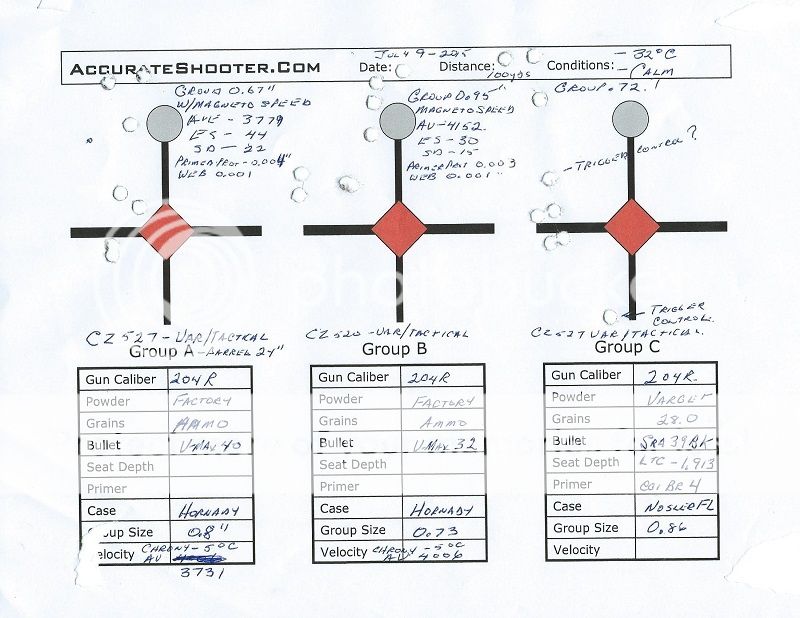 AccurateShooter.Com
JULY 9-2015
Date:
Distance:
100yds
Conditions:
- 32°C
- CALM
GROUP 0.67"
W/MAGNETO SPEED
AVE - 3779
ES - 44
SD - 22
PRIMER PROT - 0.004"
WEB 0.001
GROUP 0.95"
MAGNETOSPEED
AV - 4152.
ES - 30
SD - 15
PRIMER PROT 0.003
WEB 0.001"
GROUP .72
- TRIGGER CONTROL?
TRIGGER
CONTROL.
CZ 527 - VAR/TACTICAL
Group A - BARREL 24"
Gun Caliber 204R
Powder FACTORY
Grains AMMO
Bullet V-MAX 40
Seat Depth
Primer
Case HORNADY
Group Size 0.8"
elocity CHRONY - 5°C
AV
3731
CZ 520 - VAR/TACTICAL
Group B
Gun Caliber 204R
Powder FACTORY
Grains AMMO
Bullet V-MAX 32
Seat Depth
Primer
Case HORNADY
Group Size 0.73
Velocity CHRONY - 5°C
AV 4006
CZ 527 VAR/TACTICAL.
Group C
Gun Caliber 204R.
Powder VARGET
Grains 28.0
Bullet SRA 39 BK
Seat Depth LTC - 1.913
Primer CCI BR 4
Case NOSLER FL
Group Size 0.86
Velocity